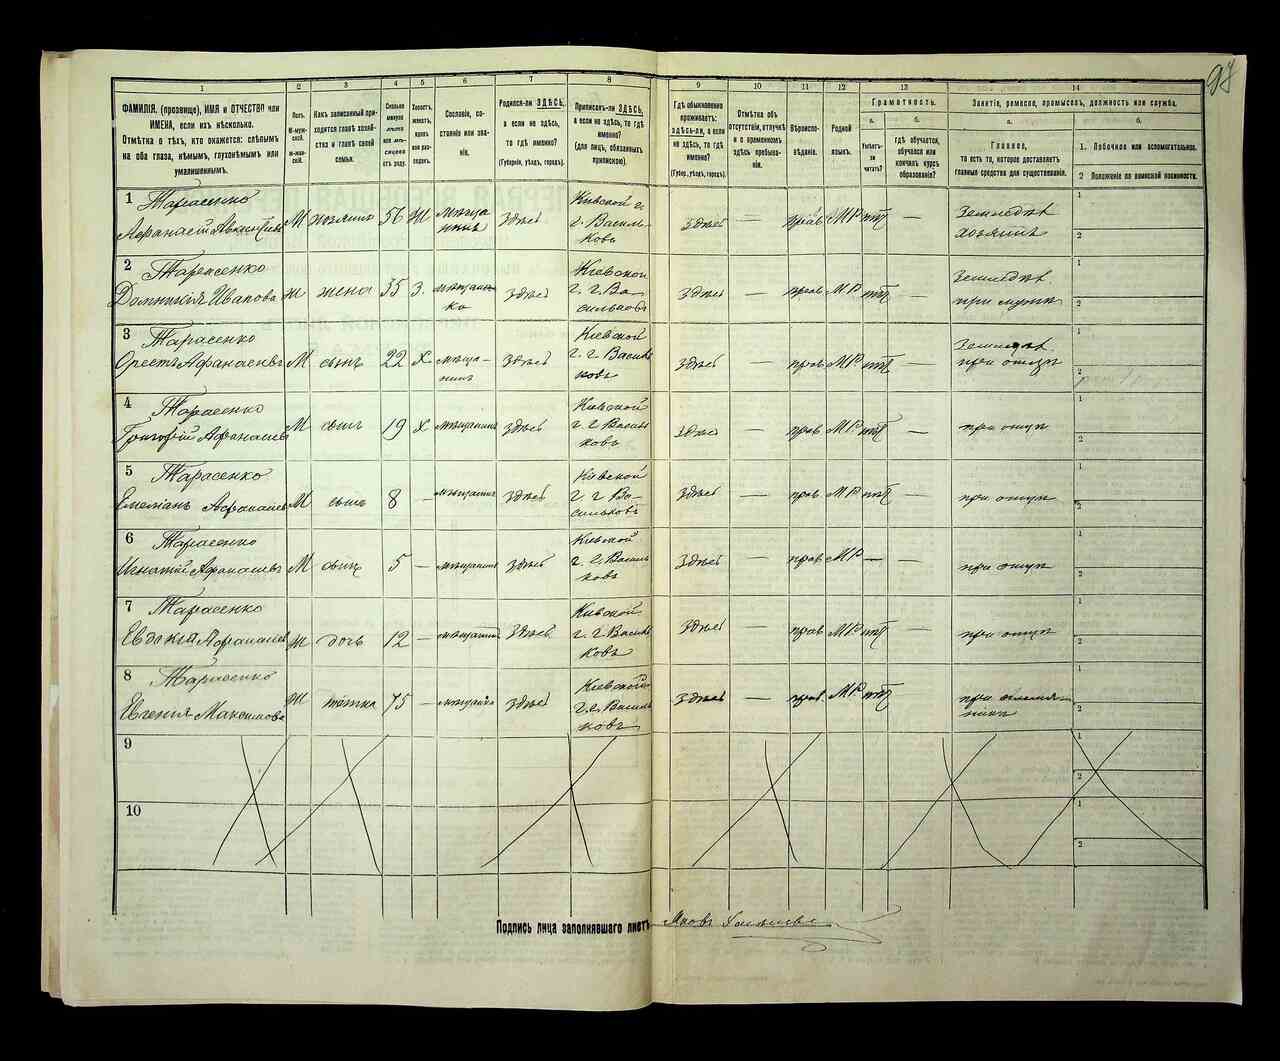 98
1 2 3 4 5 6 7 8 9 10 11 12 13 14
ФАМИЛІЯ, (прозвище), ИМЯ и ОТЧЕСТВО или
ИМЕНА, если ихъ нѣсколько.
Отмѣтка о тѣхъ, кто окажется: слѣпымъ
на оба глаза, нѣмымъ, глухонѣмымъ или
умалишеннымъ.
Полъ.
М-муж-
ской.
Ж-жен-
скій.
Какъ записанный при-
ходится главѣ хозяй-
ства и главѣ своей
семьи.
Сколько
минуло
лѣтъ
или мѣ-
сяцевъ
отъ роду.
Холостъ,
женатъ,
вдовъ
или раз-
веденъ.
Сословіе, со-
стояніе или зва-
ніе.
Родился-ли ЗДѢСЬ,
а если не здѣсь,
то гдѣ именно?
(Губернія, уѣздъ, городъ).
Приписанъ-ли ЗДѢСЬ,
а если не здѣсь, то гдѣ
именно?
(для лицъ, обязанныхъ
припискою).
Гдѣ обыкновенно
проживаетъ:
здѣсь-ли, а если
не здѣсь, то гдѣ
именно?
(Губер., уѣздъ, городъ).
Отмѣтка объ
отсутствіи, отлучкѣ
и о временномъ
здѣсь пребыва-
ніи.
Вѣроиспо-
вѣданіе.
Родной
языкъ.
Грамотность.
а.
Умѣетъ-
ли
читать?
б.
гдѣ обучается,
обучался или
кончилъ курсъ
образованія?
Занятіе, ремесло, промыселъ, должность или служба.
а.
Главное,
то есть то, которое доставляетъ
главныя средства для существованія.
б.
1. Побочное или вспомогательное.
2 Положеніе по воинской повинности.
1 Тарасенко
Афанасій М хозяинъ 56 Ж мѣща-
нинъ здѣсь Кіевской г.
г. Василь-
ковъ здѣсь — прав. МР — Земледѣл
хозяинъ 1 2
2 Тарасенко
Домникія Иванова ж жена 35 З. мѣщан-
ка здѣсь Кіевской
г. г. Ва-
сильковъ здѣсь — прав МР — Земледѣл
при мужѣ 1 2
3 Тарасенко
Орестъ Афанасіевъ М сынъ 22 Х мѣща-
нинъ здѣсь Кіевской
г. г. Василь
ковъ здѣсь — прав МР — Земледѣл
при отцѣ 1 2
4 Тарасенко
Григорій Афанасіевъ М сынъ 19 Х мѣщанинъ здѣсь Кіевской
г. г. Василь
ковъ здѣсь — прав МР — при отцѣ 1 2
5 Тарасенко
Емеліанъ Афанасіев М сынъ 8 — мѣщанинъ здѣсь Кіевской
г. г Ва-
сильковъ здѣсь — прав МР — при отцѣ 1 2
6 Тарасенко
Игнатій Афанасіевъ М сынъ 5 — мѣщанинъ здѣсь Кіевской
г. г. Василь
ковъ здѣсь — прав МР — при отцѣ 1 2
7 Тарасенко
Евдокія Афанасіев ж дочь 12 — здѣсь Кіевской
г. г Василь
ковъ здѣсь — прав МР — при отцѣ 1 2
8 Тарасенко
Евгенія Максимова Ж тётка 75 — мѣщанка здѣсь Кіевской
г. г. Василь
ковъ здѣсь — прав. МР — при 1 2
9 1 2
10 1 2
Подпись лица заполнявшаго листъ Яковъ